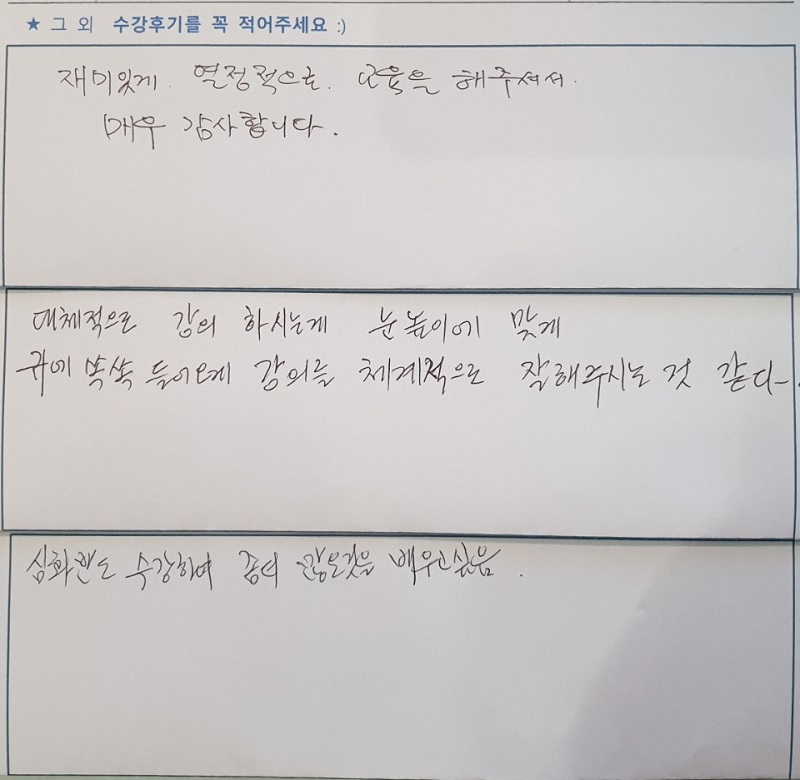 ★ 그 외 수강후기를 꼭 적어주세요 :)
재미있게 열정적으로 교육을 해주셔서
매우 감사합니다.
대체적으로 강의 하시는게 눈높이에 맞게
귀에 쏙쏙 들어오게 강의를 체계적으로 잘해주시는 것 같다.
심화반도 수강하여 좀더 많은것을 배우고싶음.